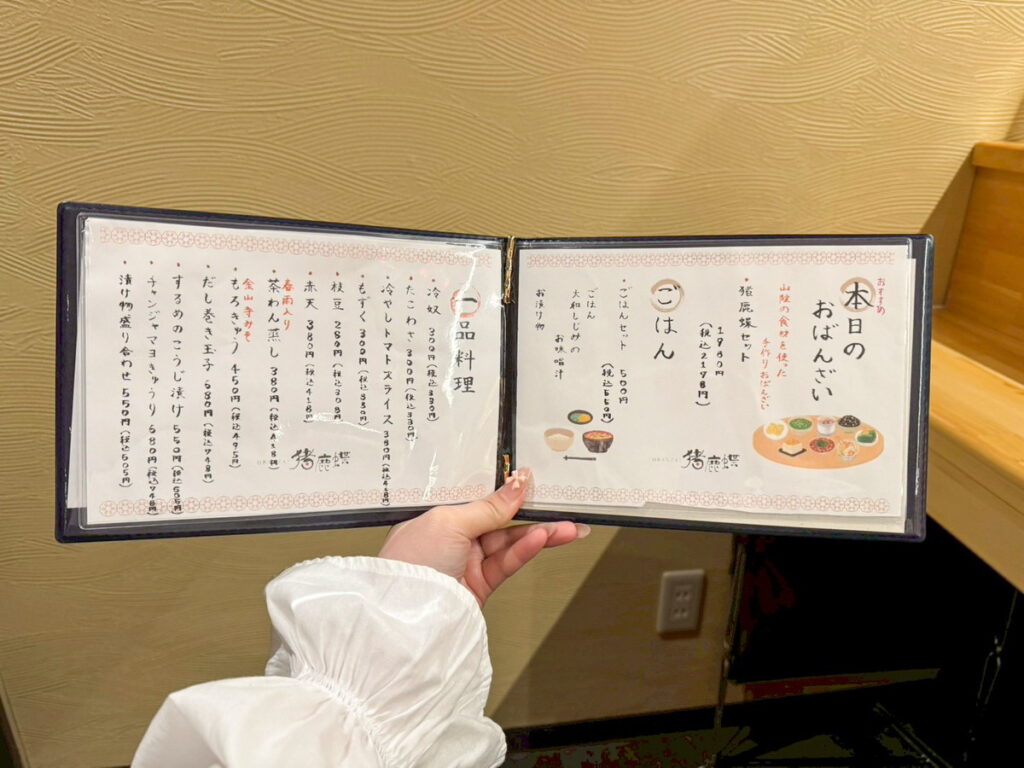 おすすめ
本日の
おばんざい
山陰の食材を使った
手作りおばんざい
・猪鹿蝶セット
1980円
(税込2178円)
猪鹿蝶
ごはん
・ごはんセット 500円
(税込550円)
ごはん
大和しじみの
お味噌汁
お漬け物
一品料理
・冷奴 300円(税込330円)
・たこわさ 300円(税込330円)
・冷やしトマトスライス 380円(税込418円)
・もずく 300円(税込330円)
・枝豆 280円(税込308円)
・赤天 380円(税込418円)
春雨入り
・茶わん蒸し 380円(税込418円)
金山寺みそ
・もろきゅう 450円(税込495円)
・だし巻き玉子 680円(税込748円)
・するめのこうじ漬け 550円(税込605円)
・チャンジャマヨきゅうり 680円(税込748円)
・漬け物盛り合わせ 550円(税込605円)
猪鹿蝶